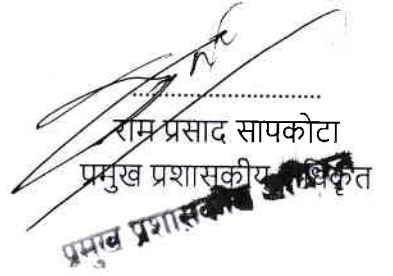 ..............................
राम प्रसाद सापकोटा
प्रमुख प्रशासकीय अधिकृत
प्रमुख प्रशासकीय अधिकृत